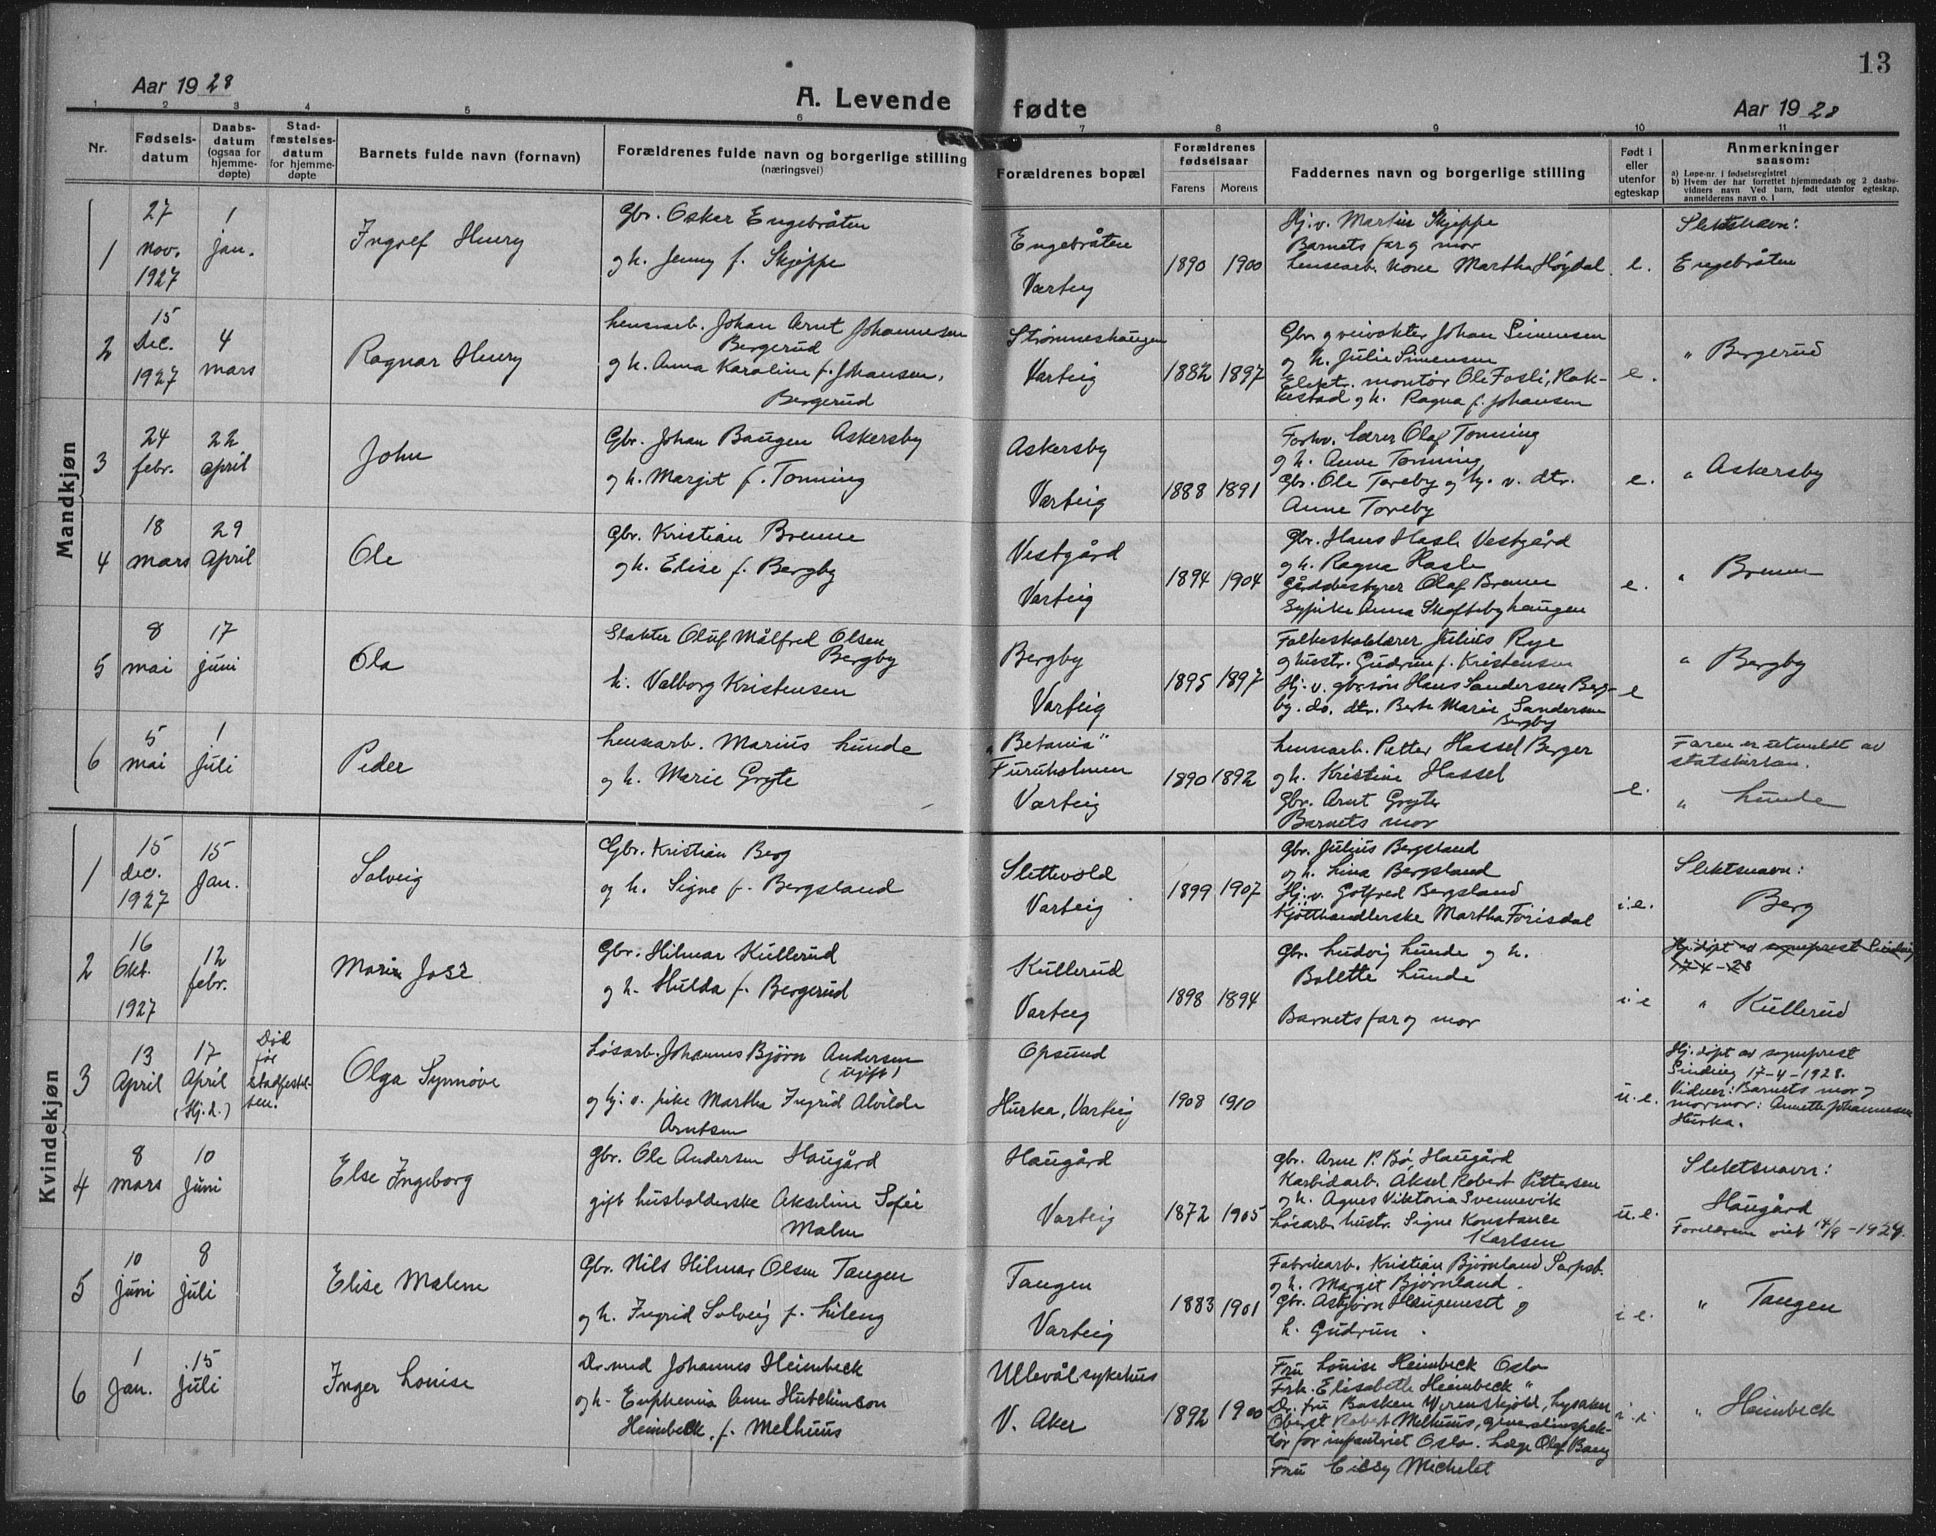 Aar 1928
A. Levende
fødte
13
Aar 1928
1 2 3 4 5 6 7 8 9 10 11
Nr.
Fødsels-
datum
Daabs-
datum
(ogsaa for
hjemme-
døpte)
Stad-
fæstelses-
datum
for hjemme-
døpte
Barnets fulde navn (fornavn)
Forældrenes fulde navn og borgerlige stilling
(næringsvei)
Forældrenes bopæl
Forældrenes
fødselsaar
Farens Morens
Faddernes navn og borgerlige stilling
Født i
eller
utenfor
egteskap
Anmerkninger
saasom:
a) Løpe-nr. i fødselsregistret
b) Hvem der har forrettet hjemmedaab og 2 daabs-
vidners navn Ved barn, født utenfor egteskap,
anmelderens navn o. l
Mandkjøn
1
27
nov.
1927
1
jan.
Ingolf Henry
Gbr. Osker Engebråten
og h. Jenny f. Skjeppe
Engebråten
Varteig
1890 1900
Hj. v. Martin Skjeppe
Barnets far og mor
lensearb. kone Martha Høydal
e.
Slektsnavn:
Engebråten
2
15
Dec.
1927
4
mars
Ragnar Henry
lensearb. Johan Arnt Johannesen
Bergerud
og h. Anna Karoline f. Johansen,
Bergerud
Strømneshaugen
Varteig
1882 1897
Gbr. og veivokter Johan Simensen
og h. Julie Simensen
Elektr. montør Ole Fosli, Rak-
kestad og h. Ragna f. Johansen
e.
" Bergerud
3
24
febr.
22
april
John
Gbr. Johan Baugen Askersby
og h. Margit f. Tonning
Askersby
Varteig
1888 1891
Forhv. lærer Olaf Tonning
og h. Anne Tonning
Gbr. Ole Toreby og hj. v. dtr.
Anne Toreby
e.
" Askersby
4
18
mars
29
April
Ole
Gbr. Kristian Brenne
og h. Elise f. Bergby
Vestgård
Varteig
1894 1904
Gbr. Hans Hasle Vestgård
og h. Ragna Hasle
Gårdsbestyrer Olaf Brenne
Sypike Anna Skoftebyhaugen
e.
" Brenne
5
8
mai
17
juni
Ola
Slakter Oluf Målfred Olsen
Bergby
h. Valborg Kristensen
Bergby
Varteig
1895 1897
Folkeskolelærer Julius Rye
og hustr. Gudrun f. Kristensen
Hj. v. gbr.søn Hans Sandersen Berg-
by. do. dtr. Berte Marie Sandersen
Bergby
e
" Bergby
6
5
mai
1
Juli
Peder
lensearb. Marius Lunde
og h. Marie Gryte
"Betania"
Furuholmen
Varteig
1890 1892
Lensearb. Petter Hassel Berger
og h. Kristine Hassel
Gbr. Arnt Gryte
Barnets mor
e.
Faren er utmeldt av
statskirken.
" Lunde
Kvindekjøn
1
15
Dec.
1927
15
Jan.
Solveig
Gbr. Kristian Berg
og h. Signe f. Bergsland
Slettevold
Varteig
1899 1907
Gbr. Julius Bergsland
og h. Lina Bergsland
Hj. v. Gotfred Bergsland
Kjøtthandlerske Martha Forisdal
i.e.
Slektsnavn:
Berg
2
16
Okt.
1927
12
febr.
Marie José
Gbr. Hilmar Kullerud
og h. Hulda f. Bergerud
Kullerud
Varteig
1898 1894
Gbr. Ludvig Lunde og h.
Bolette Lunde
Barnets far og mor
i e
Hj. døpt av sogneprest Sinding
17-4-28
" Kullerud
3
13
April
17
April
(Hj.d.)
Død
før
stadfestel-
sen.
Olga Synnøve
Løsarb. Johannes Bjørn Andersen
(ugift)
og hj. v. pike Martha Ingrid Alvilde
Arntsen
Opsund
Hurka, Varteig
1908 1910
u. e.
Hj. døpt av sogneprest
Sinding 17-4-1928.
Vidner: Barnets mor og
mormor: Annette Johannesen
Hurka.
4
8
mars
10
juni
Else Ingeborg
Gbr. Ole Andersen Haugård
gift husholderske Akseline Sofie
Malm
Haugård
Varteig
1872 1905
Gbr. Arne P. Bø, Haugård
Karbidarb. Aksel Robert Pettersen
og h. Agnes Viktoria Svennevik
Løsarb. hustr. Signe Konstance
Karlsen
u. e.
Slektsnavn:
Haugård
5
10
juni
8
juli
Elise Malene
Gbr. Nils Hilmar Olsen Tangen
og h. Ingrid Solveig f. Lileng
Tangen
Varteig
1883 1901
Fabrikarb. Kristian Bjørnland Sarpsb.
og h. Margit Bjørnland.
Gbr. Asbjørn og
h. Gudrun.
i e.
" Tangen
6
1
Jan.
15
Juli
Inger Louise
Dr. med Johannes Heimbeck
og h. Euphemia Ann Hutchinson
Heimbeck, f. Melhuus
Ullevål sykehus
V. Aker
1892 1900
Fru Louise Heimbeck Oslo
Frk. Elisabeth Heimbeck "
Dr. fru Basken Werenskjold, Lysaker
Oberst Robert Melhuus, generalinspek-
tør for infanteriet Oslo. Læge Olaf Bang
Fru Cissy Michelet
i.
" Heimbeck